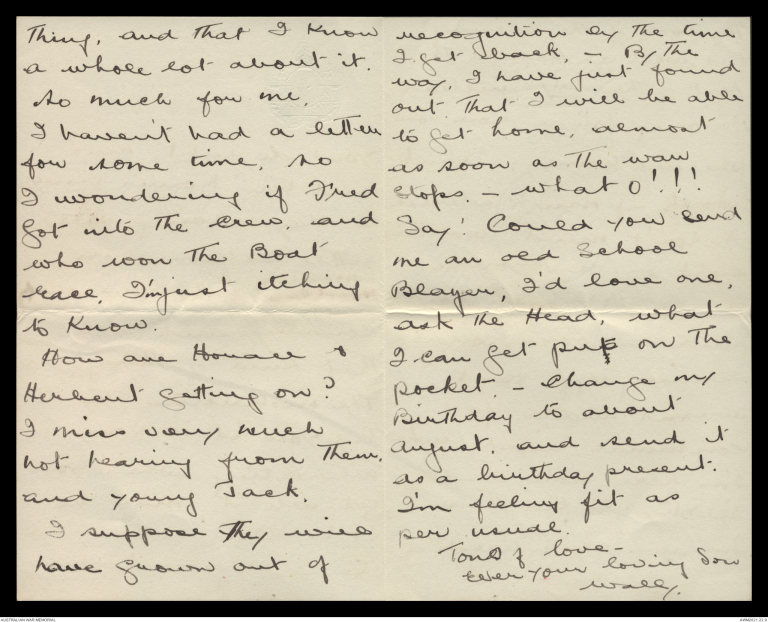 Thing, and that I know
a whole lot about it.
So much for me.
I haven't had a letter
for some time, so
I wondering if Fred
got into the crew, and
who won the Boat
race, I'm just itching
to know.
How are Horace &
Herbert getting on?
I miss very much
not hearing from them.
and young Jack.
I suppose they will
have grown out of
recognition by the time
I get back, – By the
way, I have just found
out that I will be able
to get home, almost
as soon as the war
stops. – what O'!!!
Say! Could you send
me an old School
Blazer, I'd love one,
ask the Head, what
I can get put on the
pocket. – Change my
Birthday to about
August, and send it
as a birthday present.
I'm feeling fit as
per usual.
Tons of love –
Ever your loving Son
Wally.
AUSTRALIAN WAR MEMORIAL